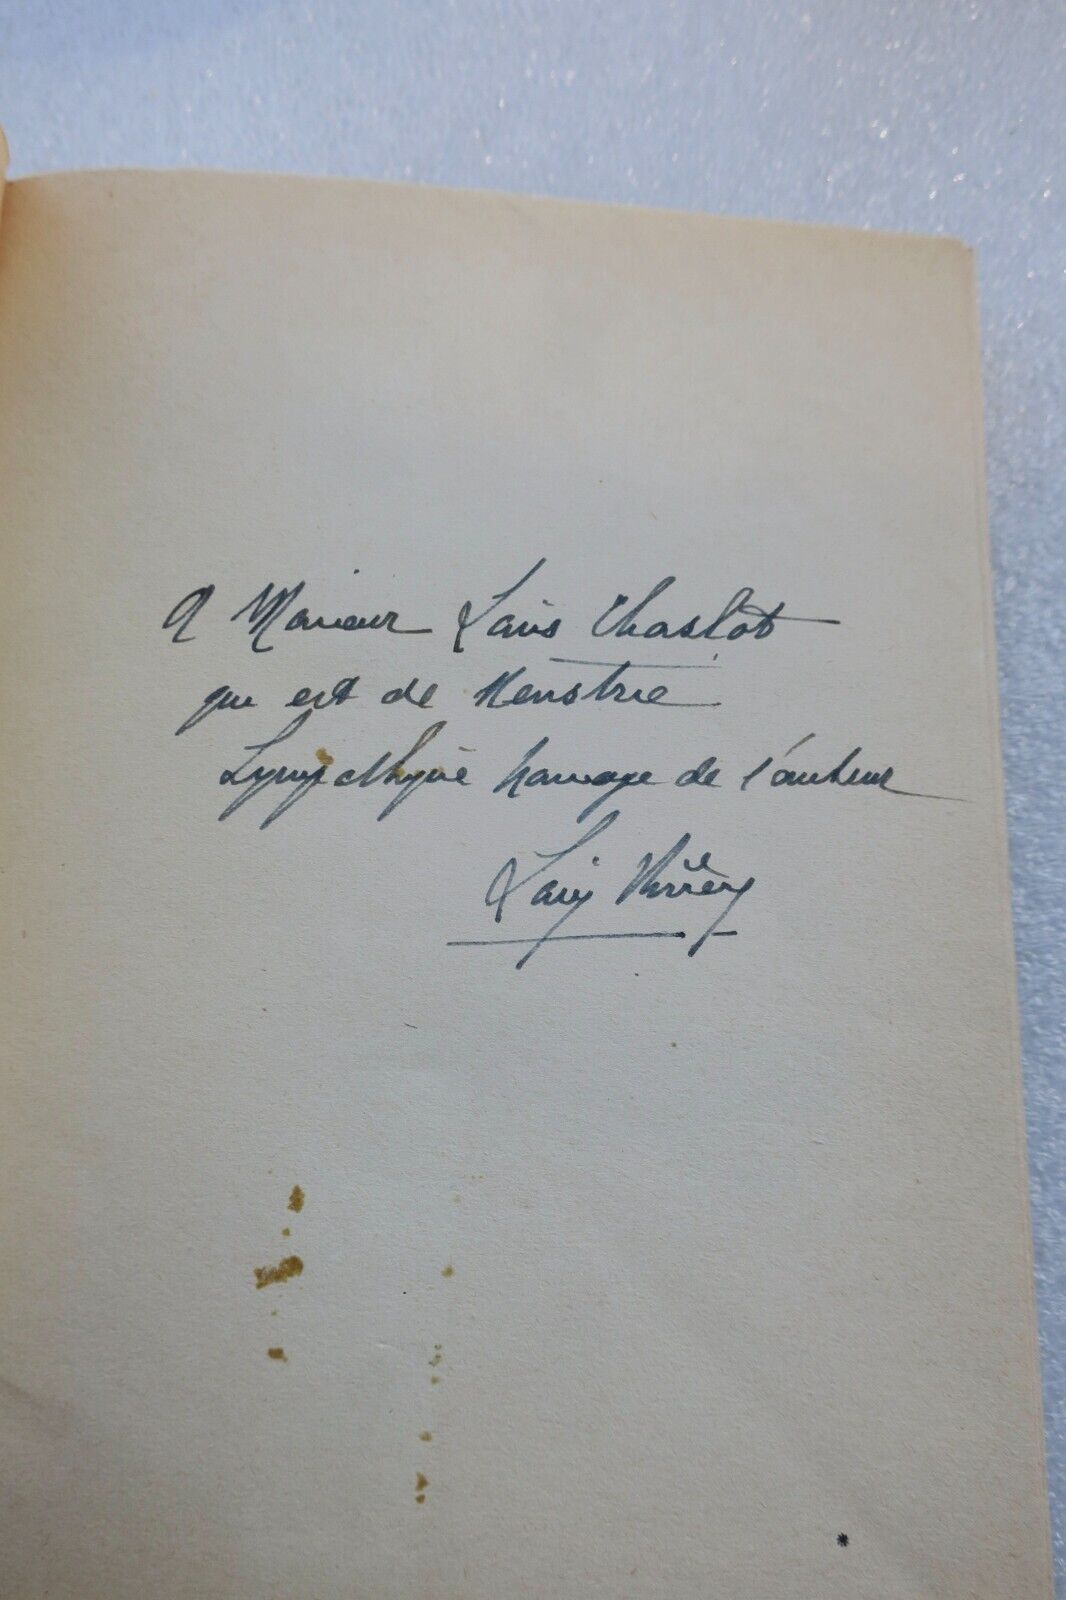 A Monsieur Louis Chaslot
qui est de
Sympathique hommage de l'auteur
Louis
*